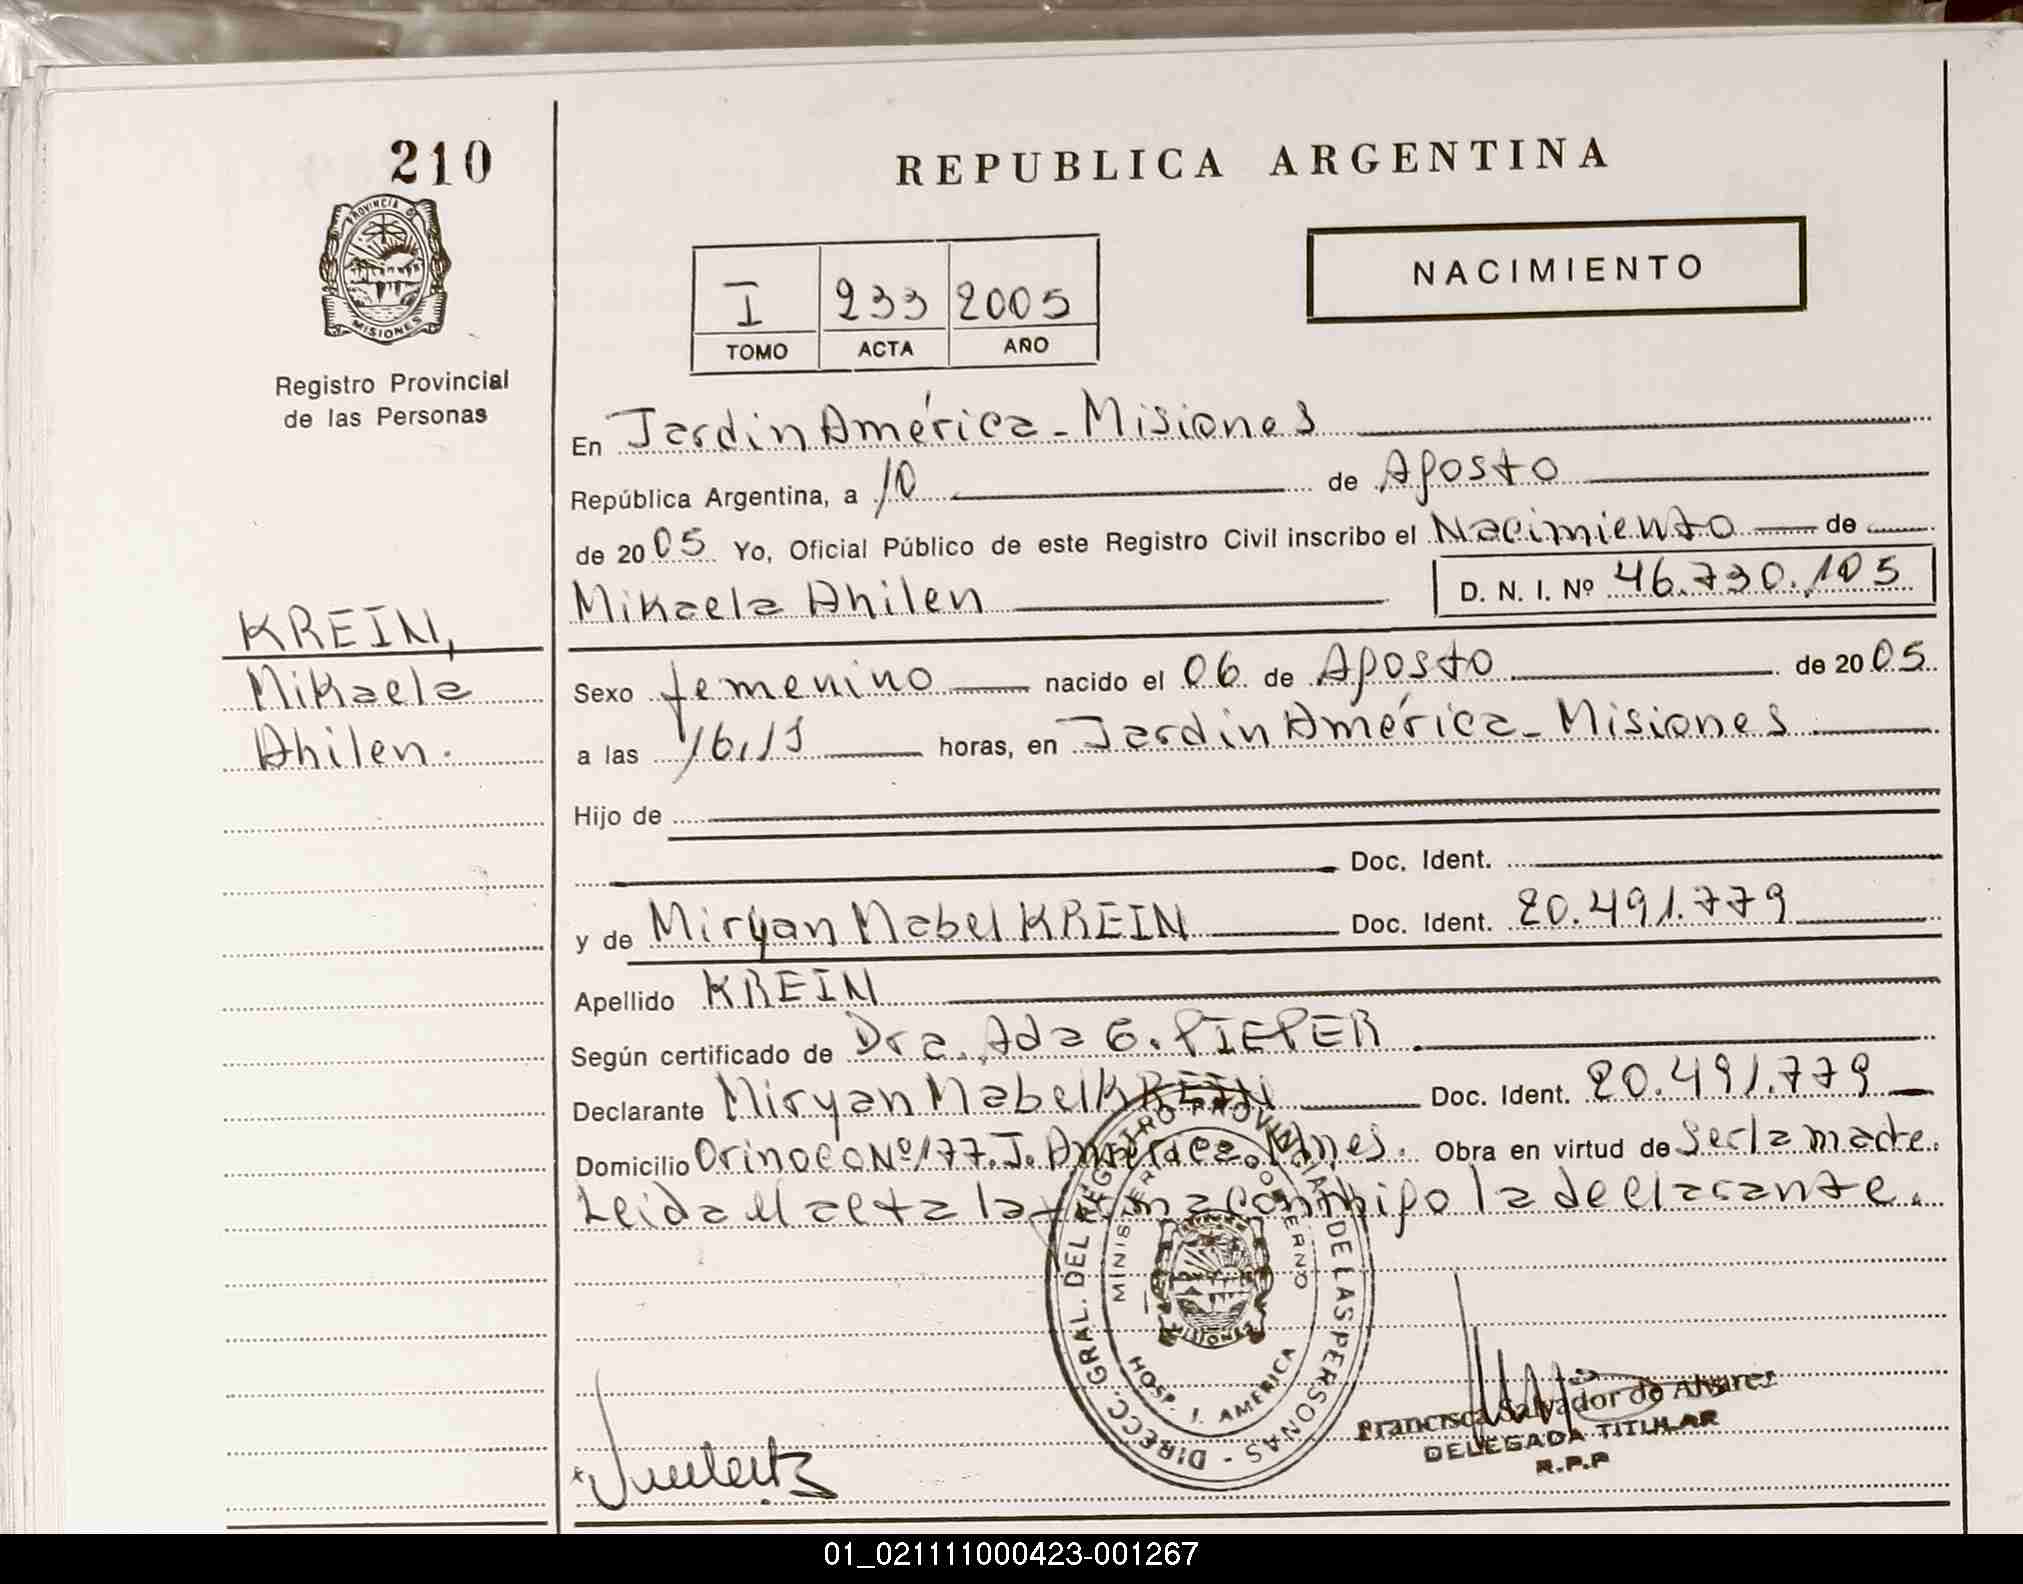 210
PROVINCIA DE
MISIONES
Registro Provincial
de las Personas
KREIN,
Mikaela
Ahilen.
REPUBLICA ARGENTINA
NACIMIENTO
I 233 2005
TOMO ACTA AÑO
En Jardin América - Misiones
República Argentina, a 10 de Agosto
de 2005 Yo, Oficial Público de este Registro Civil inscribo el Nacimiento de
Mikaela Ahilen D. N. I. Nº 46.730.105
Sexo femenino nacido el 06 de Agosto de 2005
a las 16,15 horas, en Jardin América - Misiones
Hijo de
Doc. Ident.
y de Miryan Mabel KREIN Doc. Ident. 20.491.779
Apellido KREIN
Según certificado de Dra. Ada G. PIEPER
Declarante Miryan Mabel KREIN Doc. Ident. 20.491.779
Domicilio Orinoco Nº 177. J. América. Mnes. Obra en virtud de ser la madre.
Leida el acta la firma conmigo la declarante.
DIRECC. GRAL. DEL REGISTRO PROVINCIAL DE LAS PERSONAS -
MINISTERIO DE GOBIERNO
MISIONES
HOSP. J. AMERICA
Francisca Salvador de Alvarez
DELEGADA TITULAR
R.P.P
01_021111000423-001267